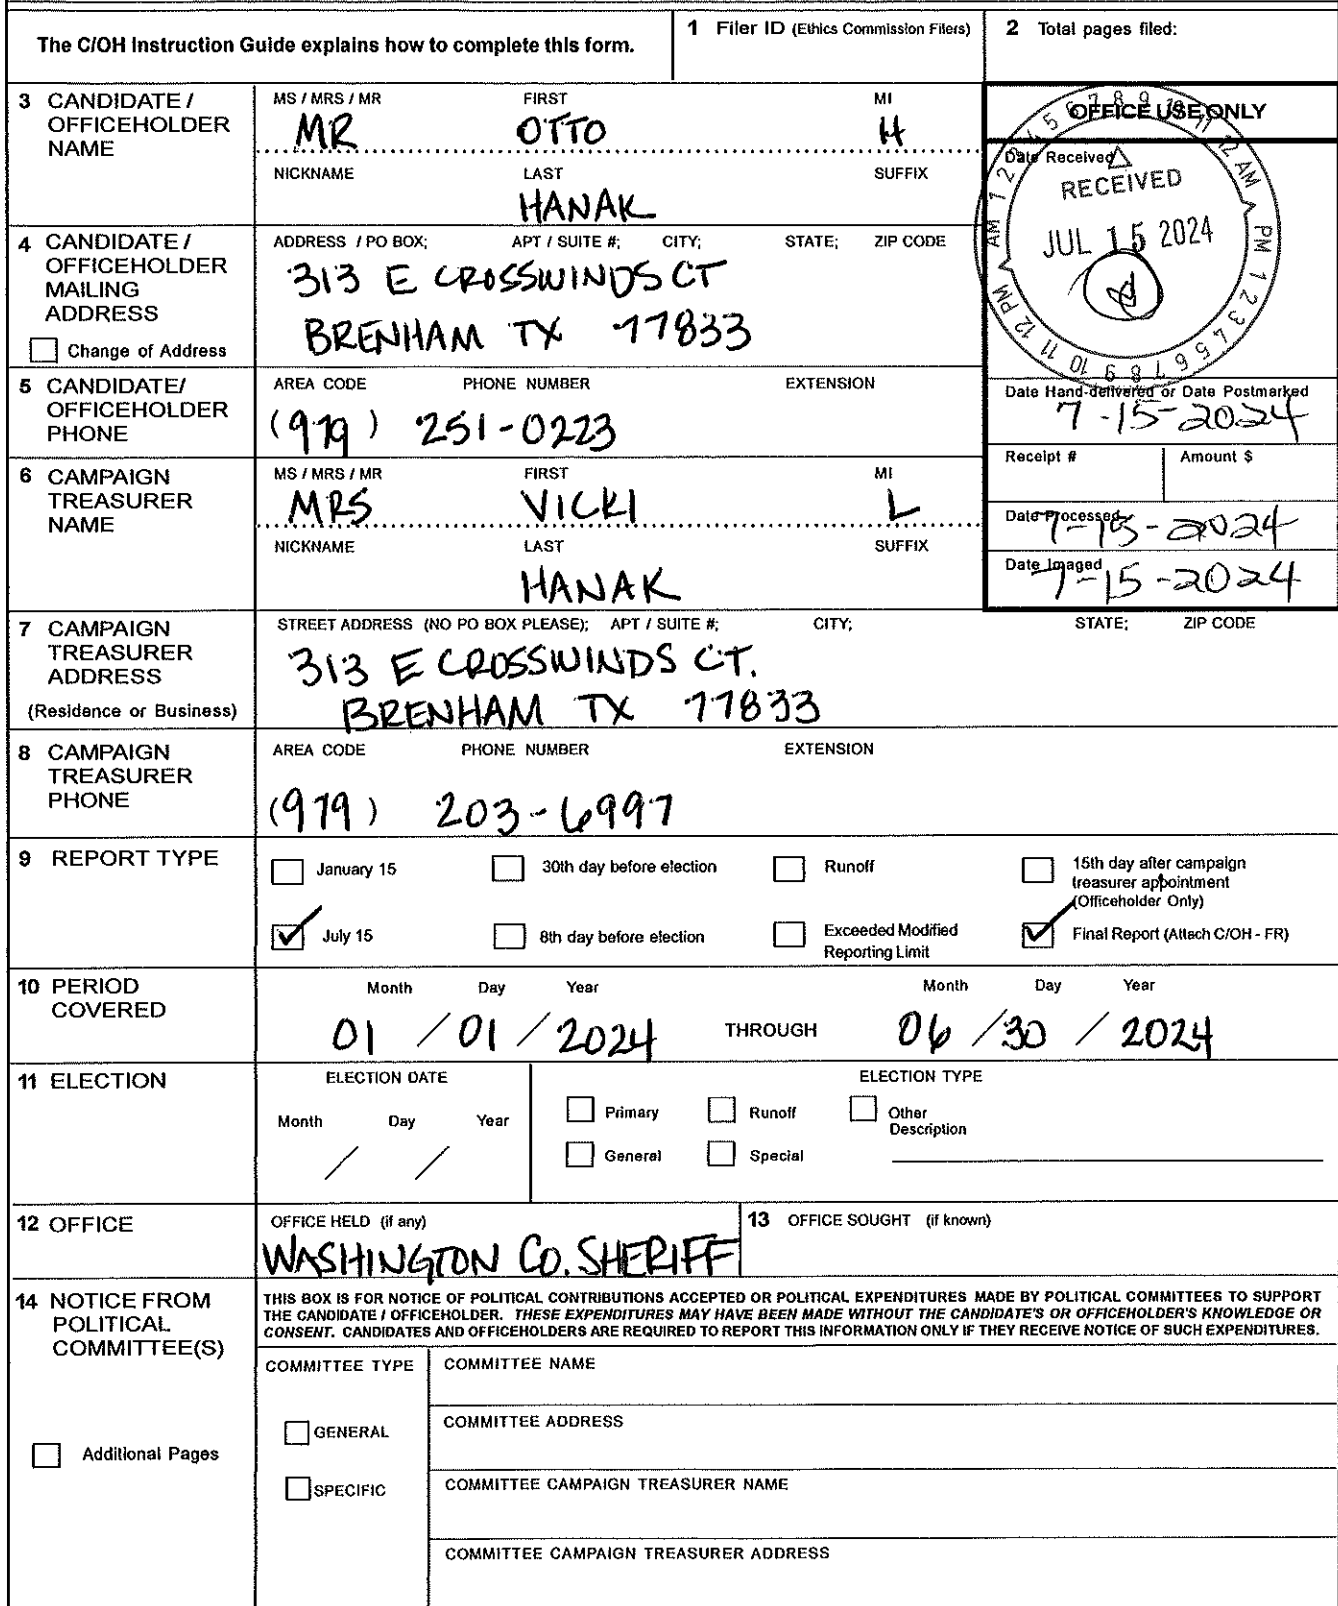 The C/OH Instruction Guide explains how to complete this form.
1 Filer ID (Ethics Commission Filers)
2 Total pages filed:
3 CANDIDATE / OFFICEHOLDER NAME
MS / MRS / MR FIRST MI
MR OTTO H
NICKNAME LAST SUFFIX
HANAK
OFFICE USE ONLY
Date Received
1 2 3 4 5 6 7 8 9 10 11 12 AM
PM 1 2 3 4 5 6 7 8 9 10 11 12 PM
AM
RECEIVED
JUL 15 2024
4 CANDIDATE / OFFICEHOLDER MAILING ADDRESS
Change of Address
ADDRESS / PO BOX; APT / SUITE #; CITY; STATE; ZIP CODE
313 E CROSSWINDS CT
BRENHAM TX 77833
5 CANDIDATE/ OFFICEHOLDER PHONE
AREA CODE PHONE NUMBER EXTENSION
(979) 251-0223
Date Hand-delivered or Date Postmarked
7-15-2024
Receipt #
Amount $
Date Processed
7-15-2024
Date Imaged
7-15-2024
6 CAMPAIGN TREASURER NAME
MS / MRS / MR FIRST MI
MRS VICKI L
NICKNAME LAST SUFFIX
HANAK
7 CAMPAIGN TREASURER ADDRESS
(Residence or Business)
STREET ADDRESS (NO PO BOX PLEASE); APT / SUITE #; CITY; STATE; ZIP CODE
313 E CROSSWINDS CT.
BRENHAM TX 77833
8 CAMPAIGN TREASURER PHONE
AREA CODE PHONE NUMBER EXTENSION
(979) 203-6997
9 REPORT TYPE
January 15
30th day before election
Runoff
15th day after campaign treasurer appointment (Officeholder Only)
July 15
8th day before election
Exceeded Modified Reporting Limit
Final Report (Attach C/OH - FR)
10 PERIOD COVERED
Month Day Year
01 / 01 / 2024
THROUGH
Month Day Year
06 / 30 / 2024
11 ELECTION
ELECTION DATE
Month Day Year
/ /
ELECTION TYPE
Primary
Runoff
Other Description
General
Special
12 OFFICE
OFFICE HELD (if any)
WASHINGTON CO. SHERIFF
13 OFFICE SOUGHT (if known)
14 NOTICE FROM POLITICAL COMMITTEE(S)
Additional Pages
THIS BOX IS FOR NOTICE OF POLITICAL CONTRIBUTIONS ACCEPTED OR POLITICAL EXPENDITURES MADE BY POLITICAL COMMITTEES TO SUPPORT
THE CANDIDATE / OFFICEHOLDER. THESE EXPENDITURES MAY HAVE BEEN MADE WITHOUT THE CANDIDATE'S OR OFFICEHOLDER'S KNOWLEDGE OR
CONSENT. CANDIDATES AND OFFICEHOLDERS ARE REQUIRED TO REPORT THIS INFORMATION ONLY IF THEY RECEIVE NOTICE OF SUCH EXPENDITURES.
COMMITTEE TYPE
GENERAL
SPECIFIC
COMMITTEE NAME
COMMITTEE ADDRESS
COMMITTEE CAMPAIGN TREASURER NAME
COMMITTEE CAMPAIGN TREASURER ADDRESS